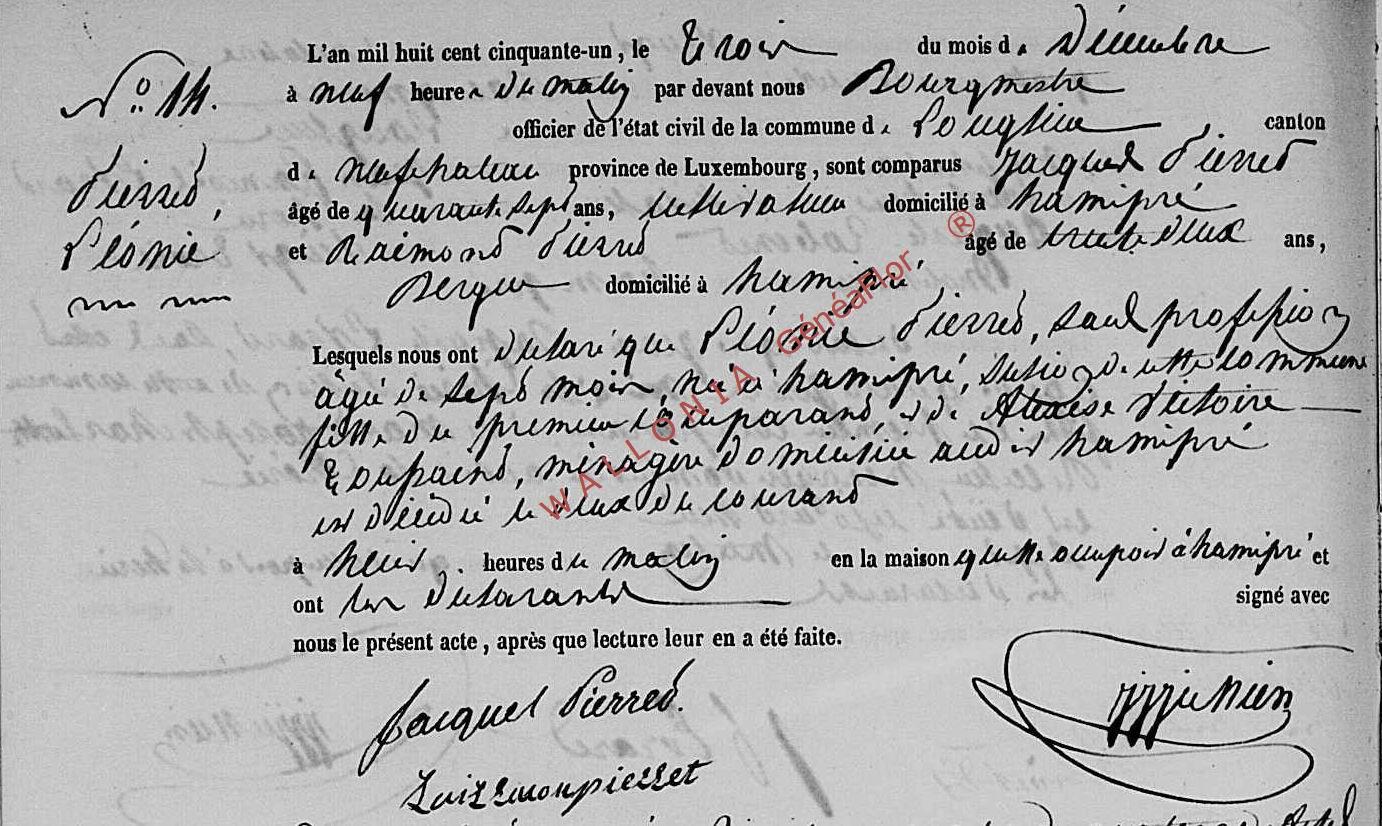 L'an mil huit cent cinquante-un, le trois du mois de Décembre
N° 14.
à neuf heures du matin par devant nous Bourgmestre
officier de l'état civil de la commune de Longlier, canton
de neufchateau province de Luxembourg, sont comparus Jacques Pierret
Pierret,
Léonie
âgé de quarante sept ans, cultivateur domicilié à hamipré
et Raimond Pierret âgé de trente deux ans,
Berger domicilié à hamipré
Lesquels nous ont déclaré que Léonie Pierret, sans profession
âgée de sept mois, née à hamipré, section de cette commune
fille du premier comparant, et de Victoire
domiciliée audit hamipré
est décédée le deux du courant
à heures du matin en la maison qu'elle occupoit à hamipré et
ont les déclarants signé avec
nous le présent acte, après que lecture leur en a été faite.
Jacques Pierret.
WALLONIA Généaflor ®